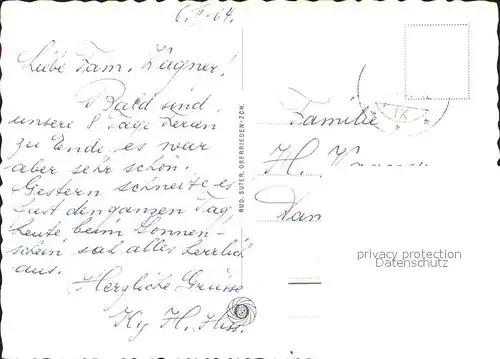 6.II.64.
Liebe Fam. Wagner!
Bald sind
unsere 8 Tage Ferien
zu Ende, es war
aber sehr schön.
Gestern schneite es
fast den ganzen Tag,
heute beim Sonnen-
schein sah alles herrlich
aus.
Herzliche Grüsse
H. Hiss.
RUD. SUTER, OBERRIEDEN-ZCH.
Familie
H.
privacy protection
Datenschutz